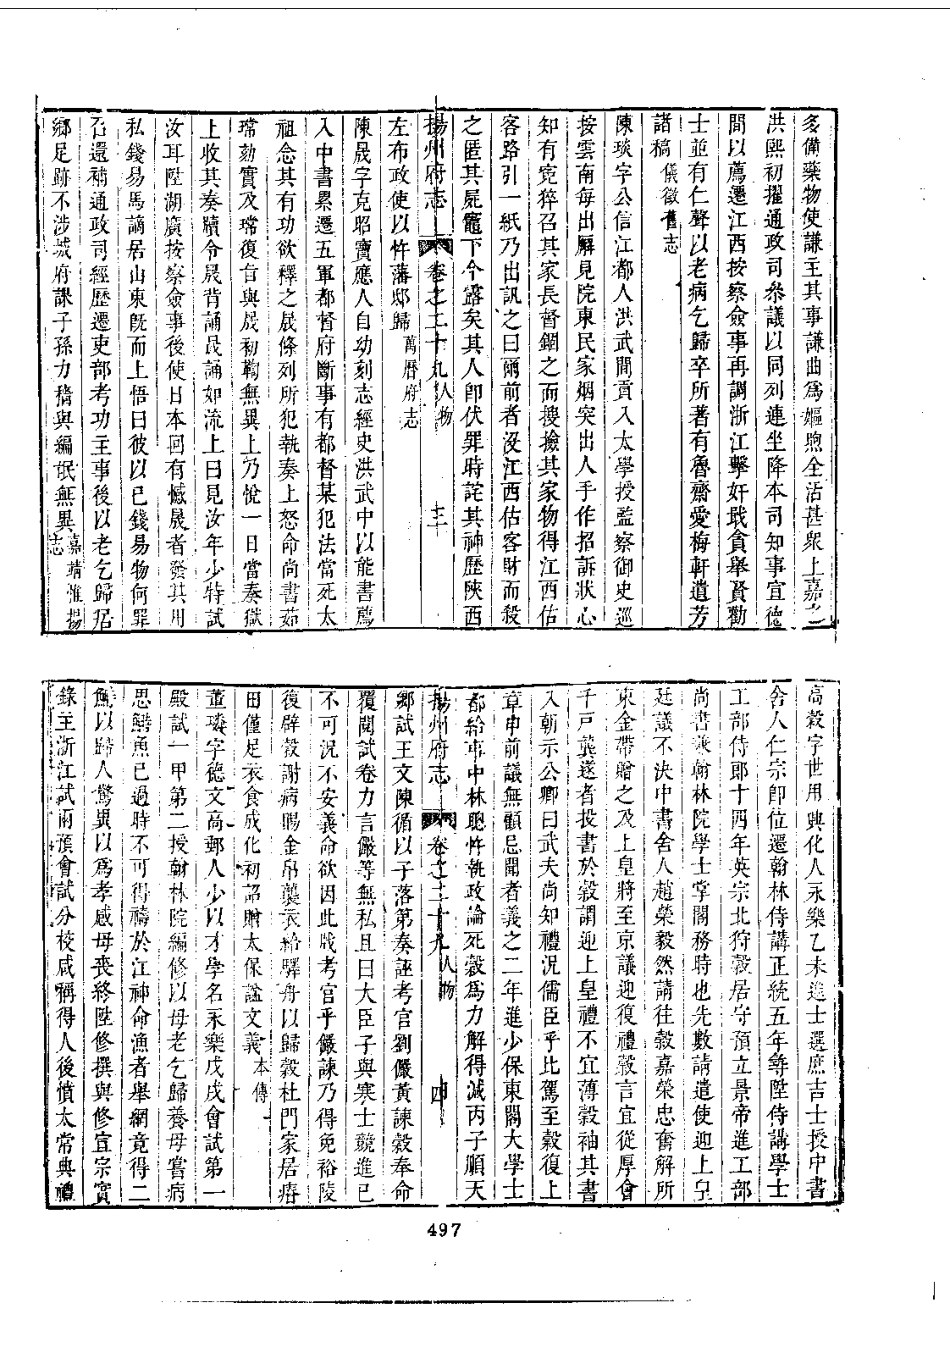 多備藥物使謙主其事謙曲爲嫗煦全活甚衆上嘉之
洪熙初擢通政司叅議以同列連坐降本司知事宣德
間以薦遷江西按察僉事再調浙江擊奸戢貪舉賢勸
士並有仁聲以老病乞歸卒所著有魯齋愛梅軒遺芳
諸稿儀徵舊志
陳琰字公信江都人洪武間貢入太學授監察御史巡
按雲南每出廨見院東民家烟突出人手作招訴狀心
知有寃猝召其家長督錮之而搜撿其家物得江西估
客路引一紙乃出訊之曰爾前者沒江西估客財而殺
之匿其屍竈下今露矣其人卽伏罪時詫其神歷陝西
揚州府志 卷之二十九人物
左布政使以忤藩邸歸萬曆府志
陳晟字克昭寶應人自幼刻志經史洪武中以能書薦
入中書累遷五軍都督府斷事有都督某犯法當死太
祖念其有功欲釋之晟條列所犯執奏上怒命尚書茹
瑺劾實及瑺復言與晟初鞫無異上乃悅一日當奏獄
上收其奏牘令晟背誦晟誦如流上曰見汝年少特試
汝耳陞湖廣按察僉事後使日本回有憾晟者發其用
私錢易馬謫居山東旣而上悟曰彼以已錢易物何罪
召還補通政司經歷遷吏部考功主事後以老乞歸居
鄉足跡不涉城府課子孫力穡與編氓無異嘉靖惟揚志
高穀字世用興化人永樂乙未進士選庶吉士授中書
舍人仁宗卽位遷翰林侍講正統五年尋陞侍講學士
工部侍郎十四年英宗北狩穀居守預立景帝進工部
尚書兼翰林院學士掌閣務時也先數請遣使迎上皇
廷議不決中書舍人趙榮毅然請往穀嘉榮忠奮解所
束金帶贈之及上皇將至京議迎復禮穀言宜從厚會
千戸龔遂者投書於穀謂迎上皇禮不宜薄穀袖其書
入朝示公卿曰武夫尚知禮況儒臣乎比駕至穀復上
章申前議無顧忌聞者義之二年進少保東閣大學士
都給事中林聰忤執政論死穀爲力解得減丙子順天
揚州府志 卷之二十九人物 四
鄉試王文陳循以子落第奏誣考官劉儼黃諫穀奉命
覆閱試卷力言儼等無私且曰大臣子與寒士競進已
不可況不安義命欲因此戕考官乎儼諫乃得免裕陵
復辟穀謝病賜金帛襲衣給驛舟以歸穀杜門家居瘠
田僅足衣食成化初詔贈太保諡文義本傳
董璘字德文高郵人少以才學名永樂戊戌會試第一
殿試一甲第二授翰林院編修以母老乞歸養母嘗病
思鱘魚已過時不可得禱於江神命漁者舉網竟得二
魚以歸人驚異以爲孝感母喪終陞修撰與修宣宗實
錄主浙江試兩預會試分校咸稱得人後憤太常典禮
497